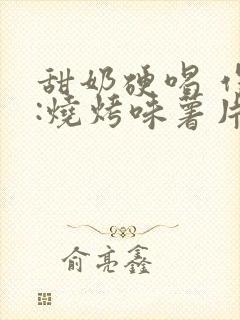 甜奶硬唱
:燒烤味薯片
俞亮鑫